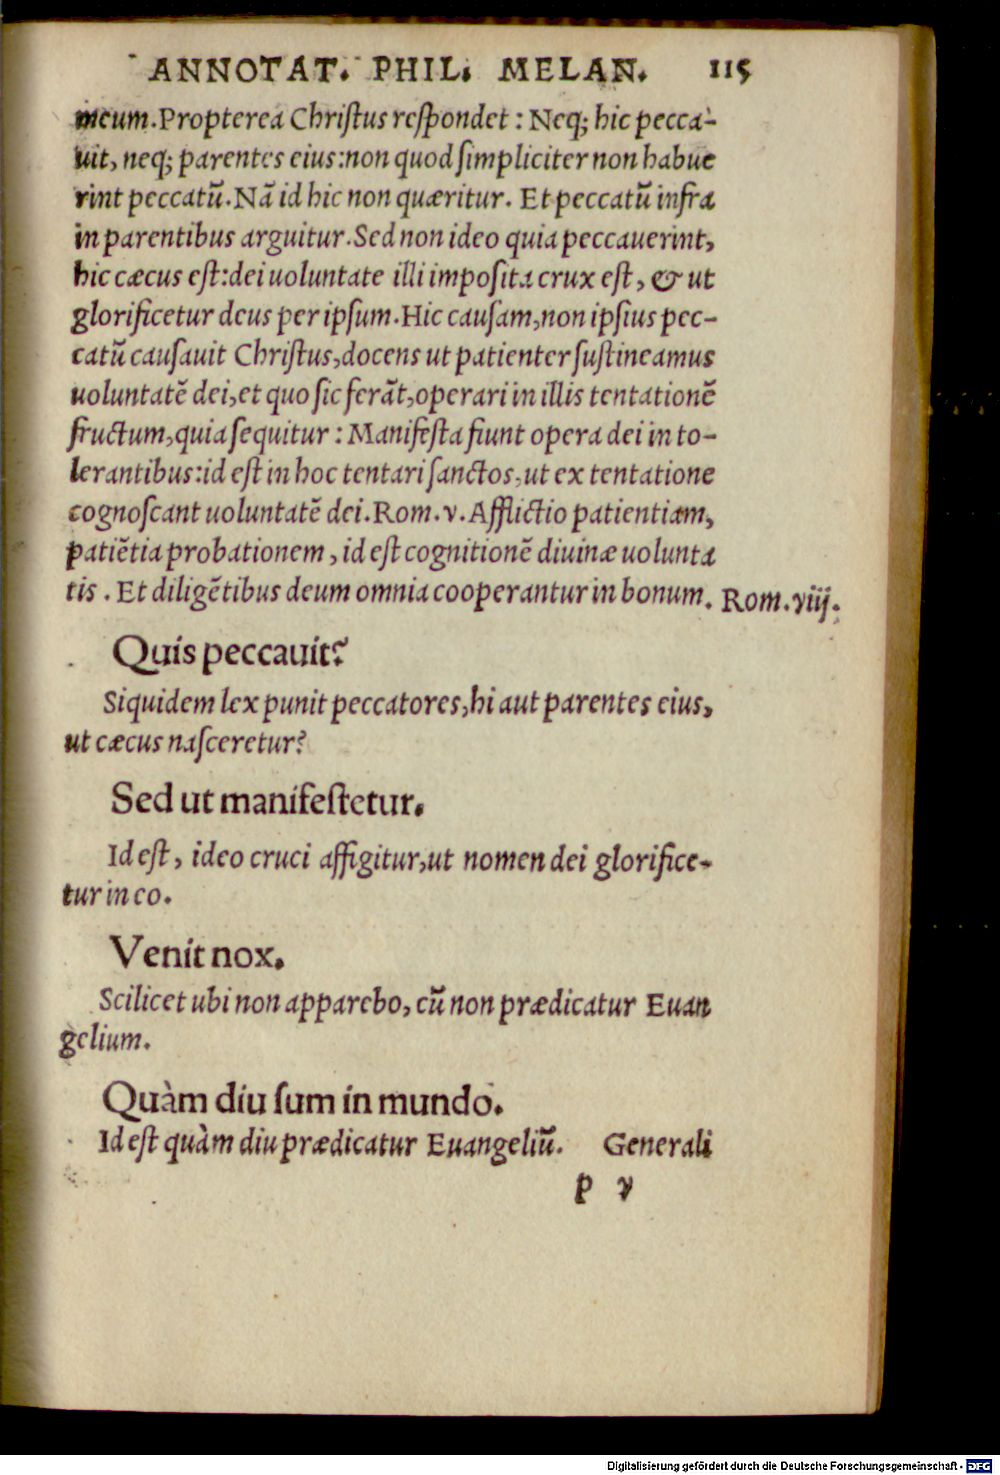 ANNOTAT. PHIL. MELAN. 115
meum. Propterea Chriſtus reſpondet : Neq; hic pecca-
uit, neq; parentes eius: non quod ſimpliciter non habue
rint peccatũ. Nã id hic non quæritur. Et peccatũ infra
in parentibus arguitur. Sed non ideo quia peccauerint,
hic cæcus eſt: dei uoluntate illi impoſita crux eſt, & ut
glorificetur deus per ipſum. Hic cauſam, non ipſius pec-
catũ cauſauit Chriſtus, docens ut patienter ſuſtineamus
uoluntatẽ dei, et quo ſic ferãt, operari in illis tentationẽ
fructum, quia ſequitur : Manifeſta fiunt opera dei in to-
lerantibus: id eſt in hoc tentari ſanctos, ut ex tentatione
cognoſcant uoluntatẽ dei. Rom. v. Afflictio patientiam,
patiẽtia probationem, id eſt cognitionẽ diuinæ uolunta
tis. Et diligẽtibus deum omnia cooperantur in bonum. Rom. viij.
Quis peccauit?
Siquidem lex punit peccatores, hi aut parentes eius,
ut cæcus naſceretur?
Sed ut manifeſtetur.
Id eſt, ideo cruci affigitur, ut nomen dei glorifice-
tur in eo.
Venit nox.
Scilicet ubi non apparebo, cũ non prædicatur Euan
gelium.
Quàm diu ſum in mundo.
Id eſt quàm diu prædicatur Euangeliũ. Generali
p v
Digitalisierung gefördert durch die Deutsche Forschungsgemeinschaft - DFG